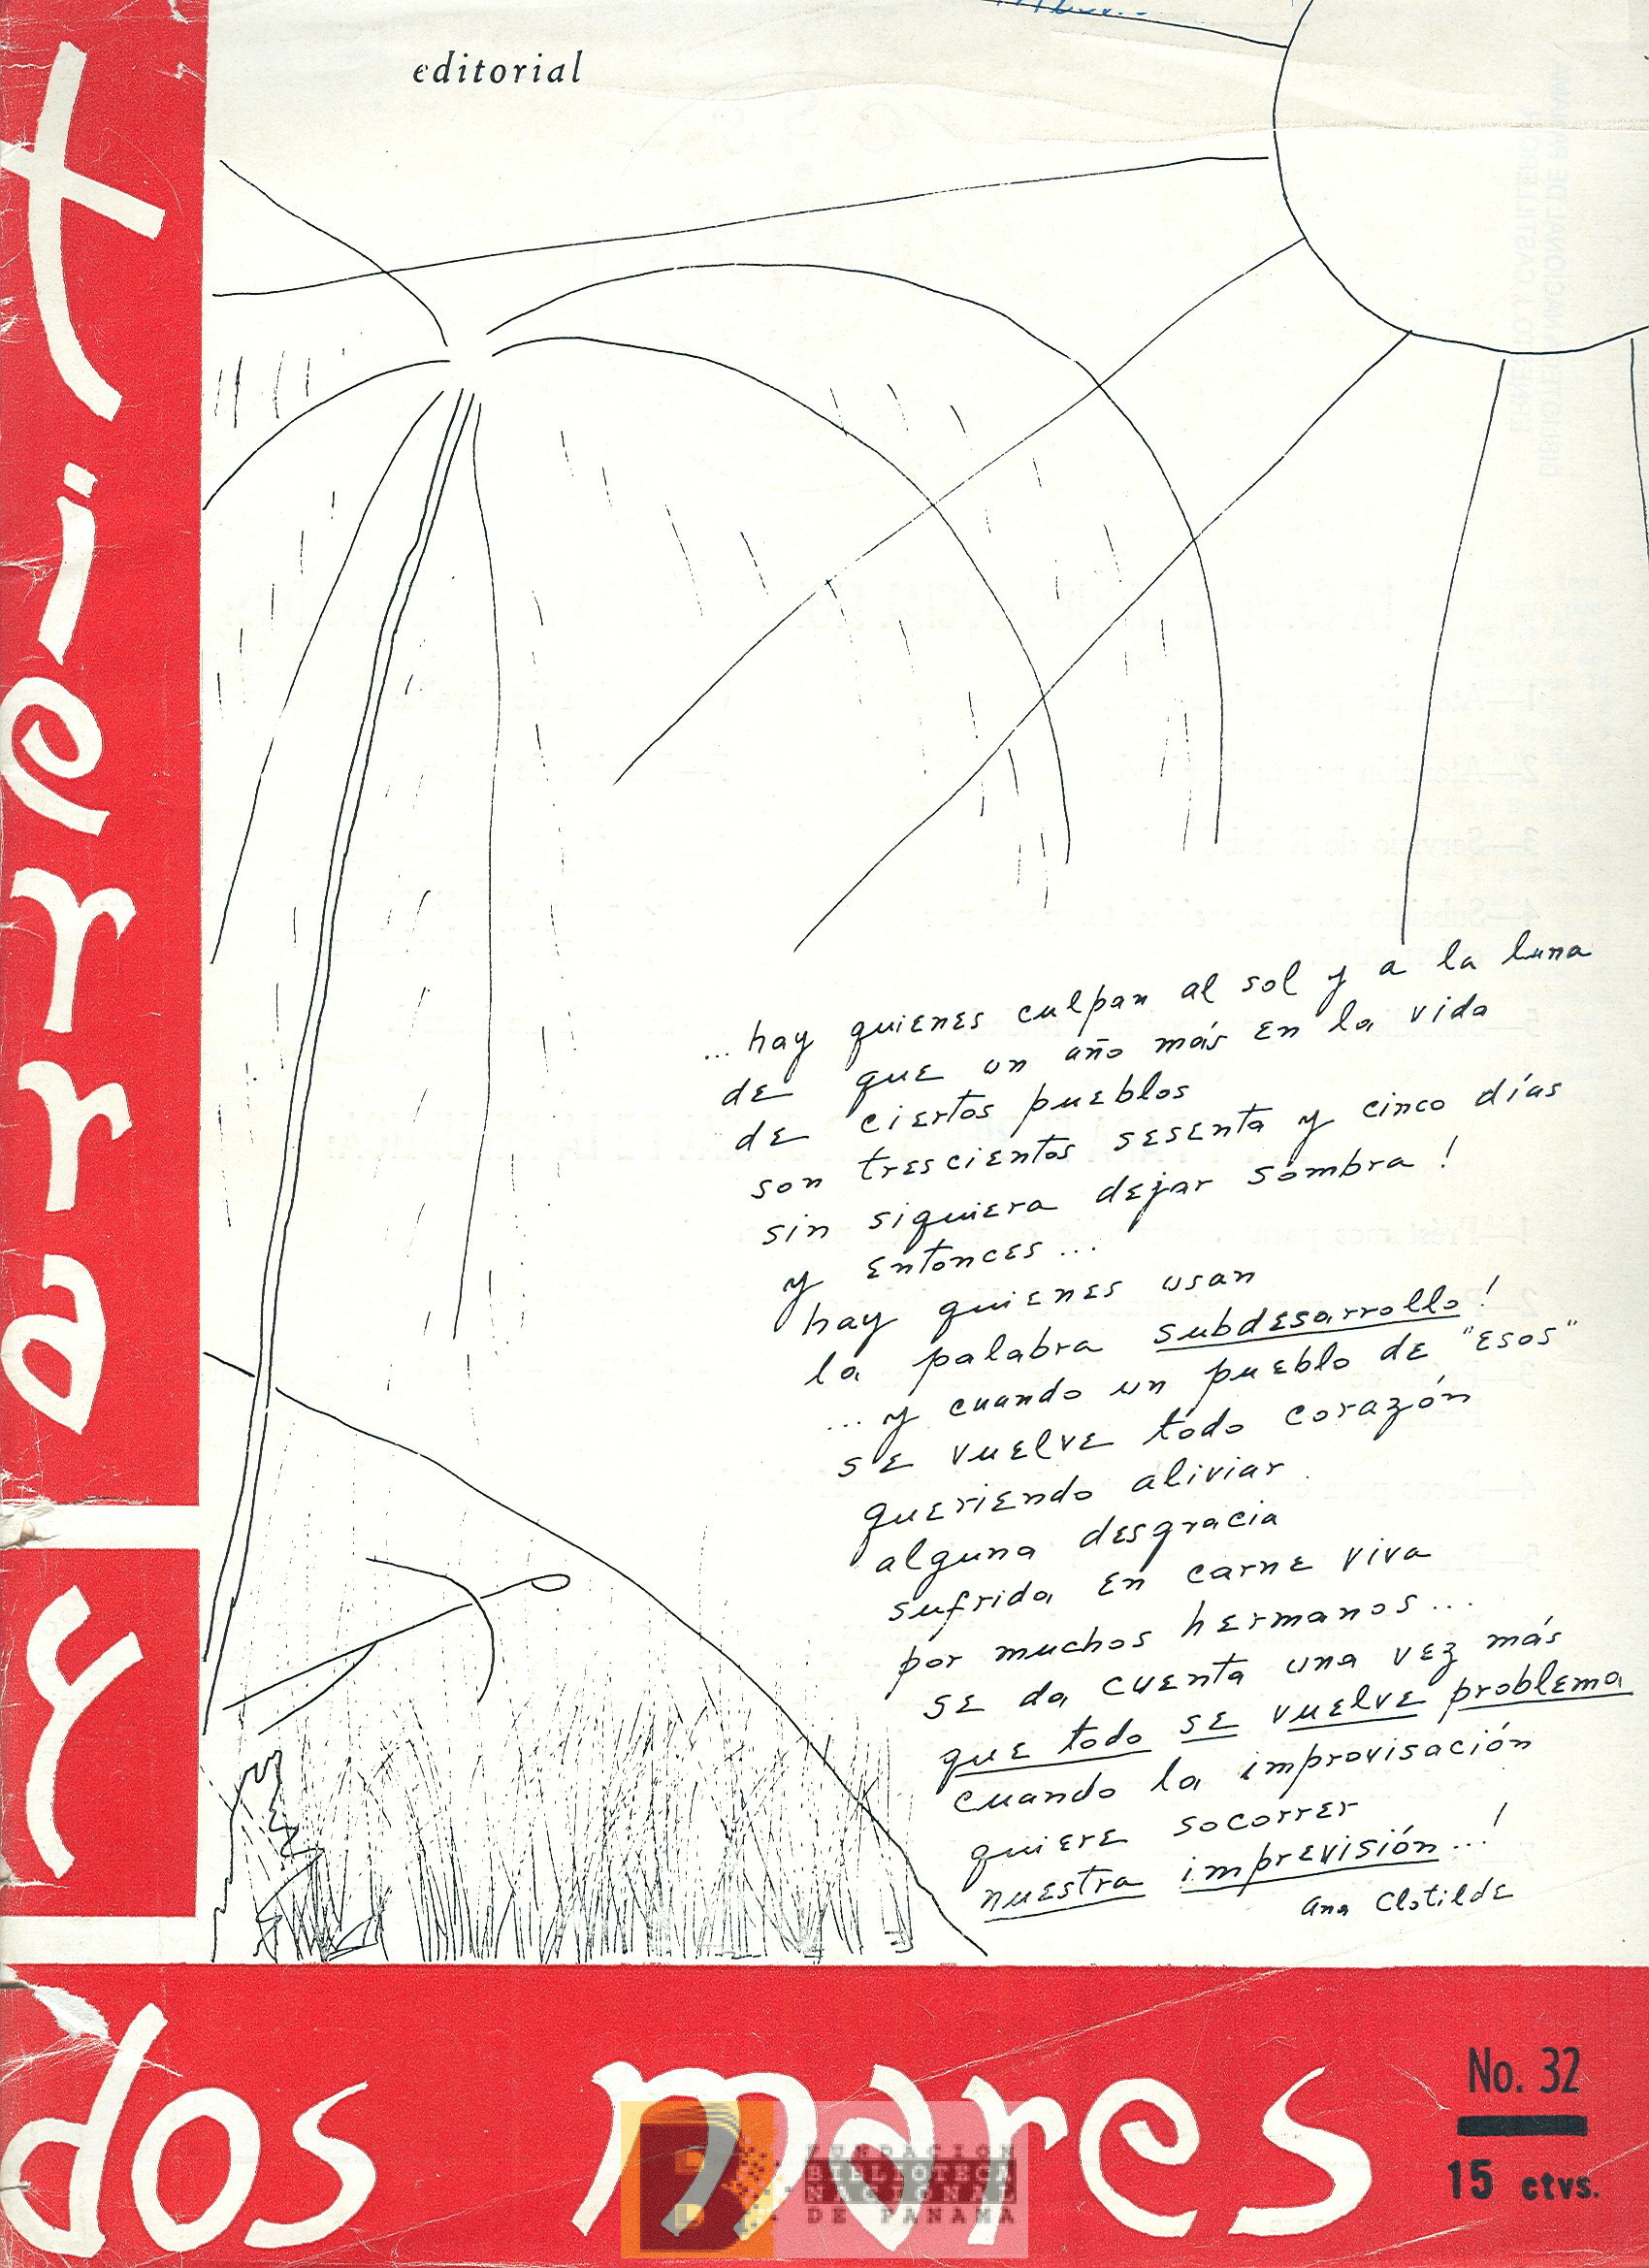 editorial
tierra
y
dos mares
...hay quienes culpan al sol y a la luna
de que un año más en la vida
de ciertos pueblos
son trescientos sesenta y cinco días
sin siquiera dejar sombra!
y entonces...
hay quienes usan
la palabra subdesarrollo!
...y cuando un pueblo de "esos"
se vuelve todo corazón
queriendo aliviar
alguna desgracia
sufrida en carne viva
por muchos hermanos...
se da cuenta una vez más
que todo se vuelve problema
cuando la improvisación
quiere socorrer
nuestra imprevisión...!
Ana Clotilde
No. 32
15 ctvs.
FUNDACION
BIBLIOTECA
NACIONAL
DE PANAMA